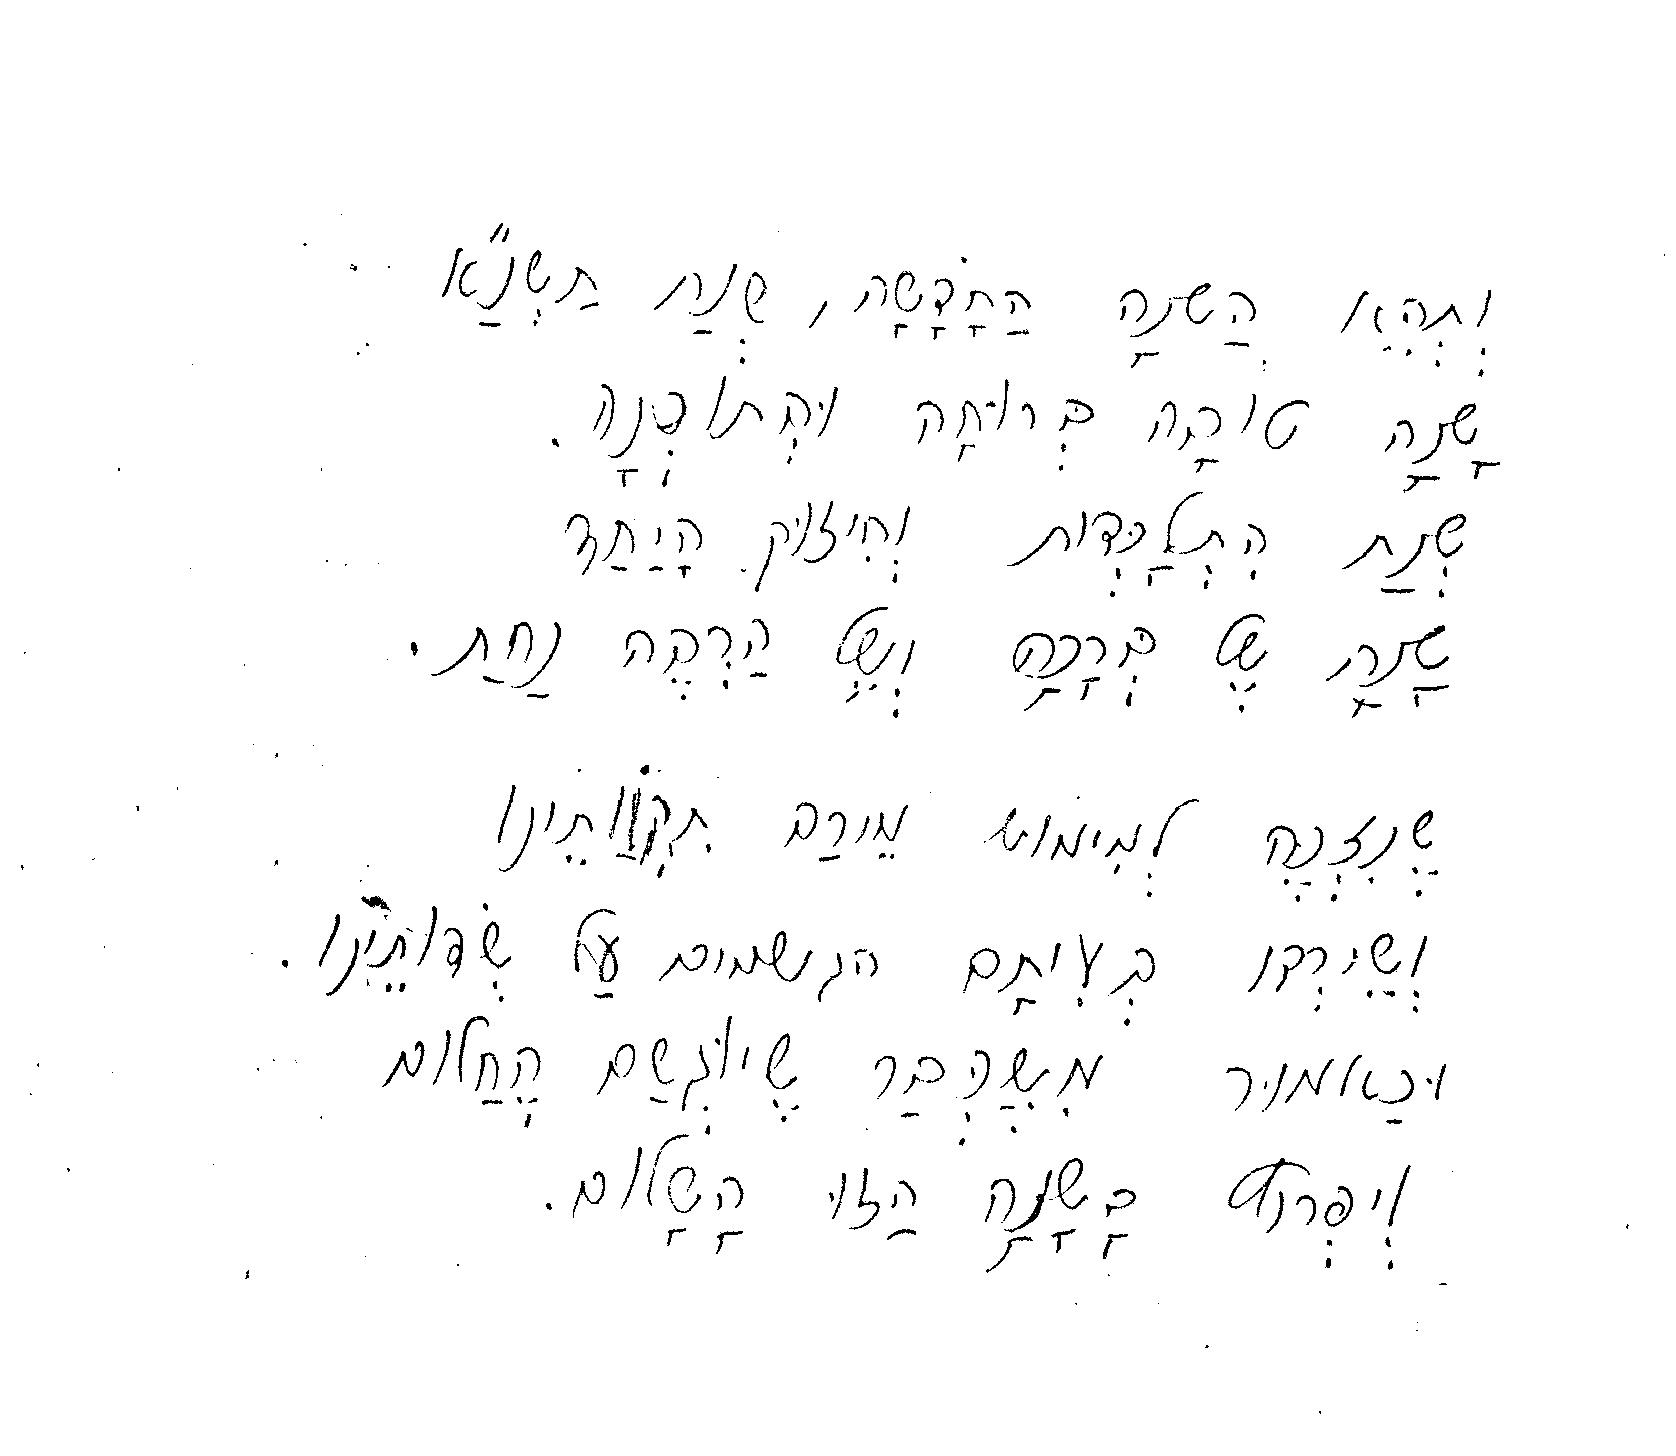 וְתְהֵא הַשנָה הַחֲדָשָה, שְנַת תַשְנַ"א
שָנָה טוֹבָה בְּרוּחָה וּמְתוּכְנָה.
שְנַת הִתְלַכְּדוּת וְחִיזוּק הָיַחַד
שָנָה שֶל בְּרָכָה וְשֶל הַרְבֶּה נַחַת.
שֶנִזְכֶּה לְמִימוּש מֵירַב תִקְווֹתֵינוּ
וְשֶיֵרְדוּ בְּעִיתָם הגשמים עַל שְׂדוֹתֵינוּ.
וּכַאמוּר שֶיוּגְשַם הַחֲלום
וְיִפְרוֹש בָּשָנָה הַזוּ הָשָלום.